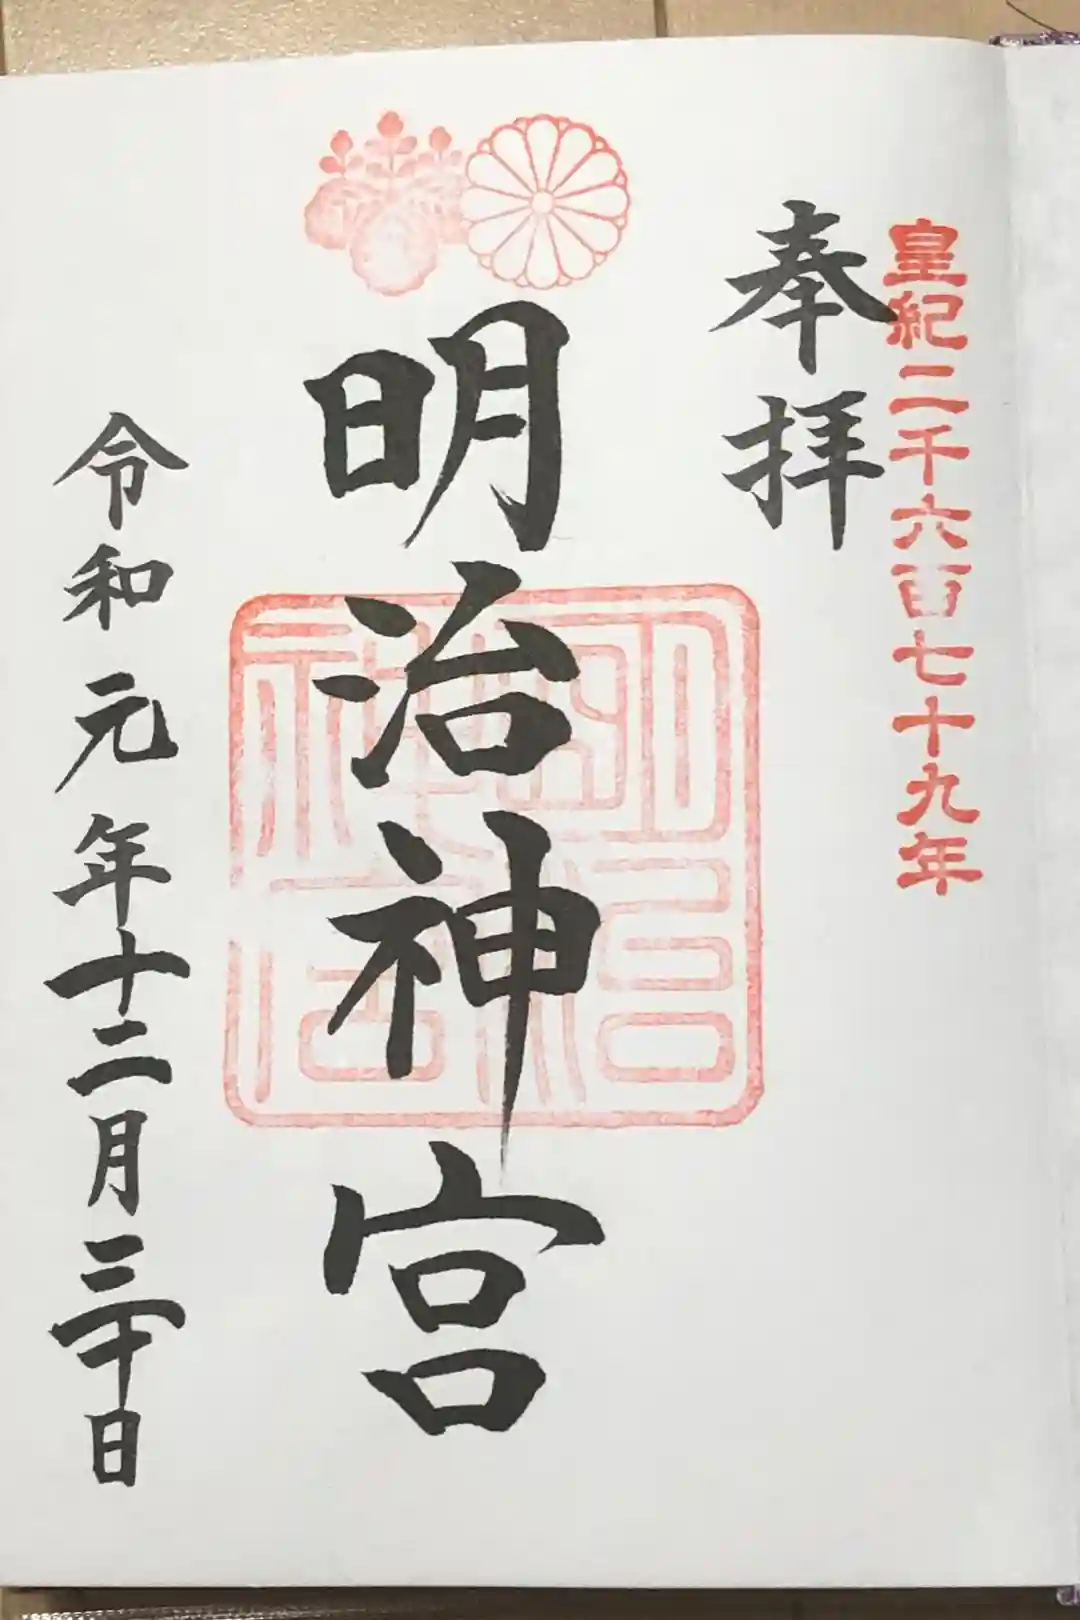 皇紀二千六百七十九年
奉拝
明治神宮
明治神宮
令和元年十二月三十日